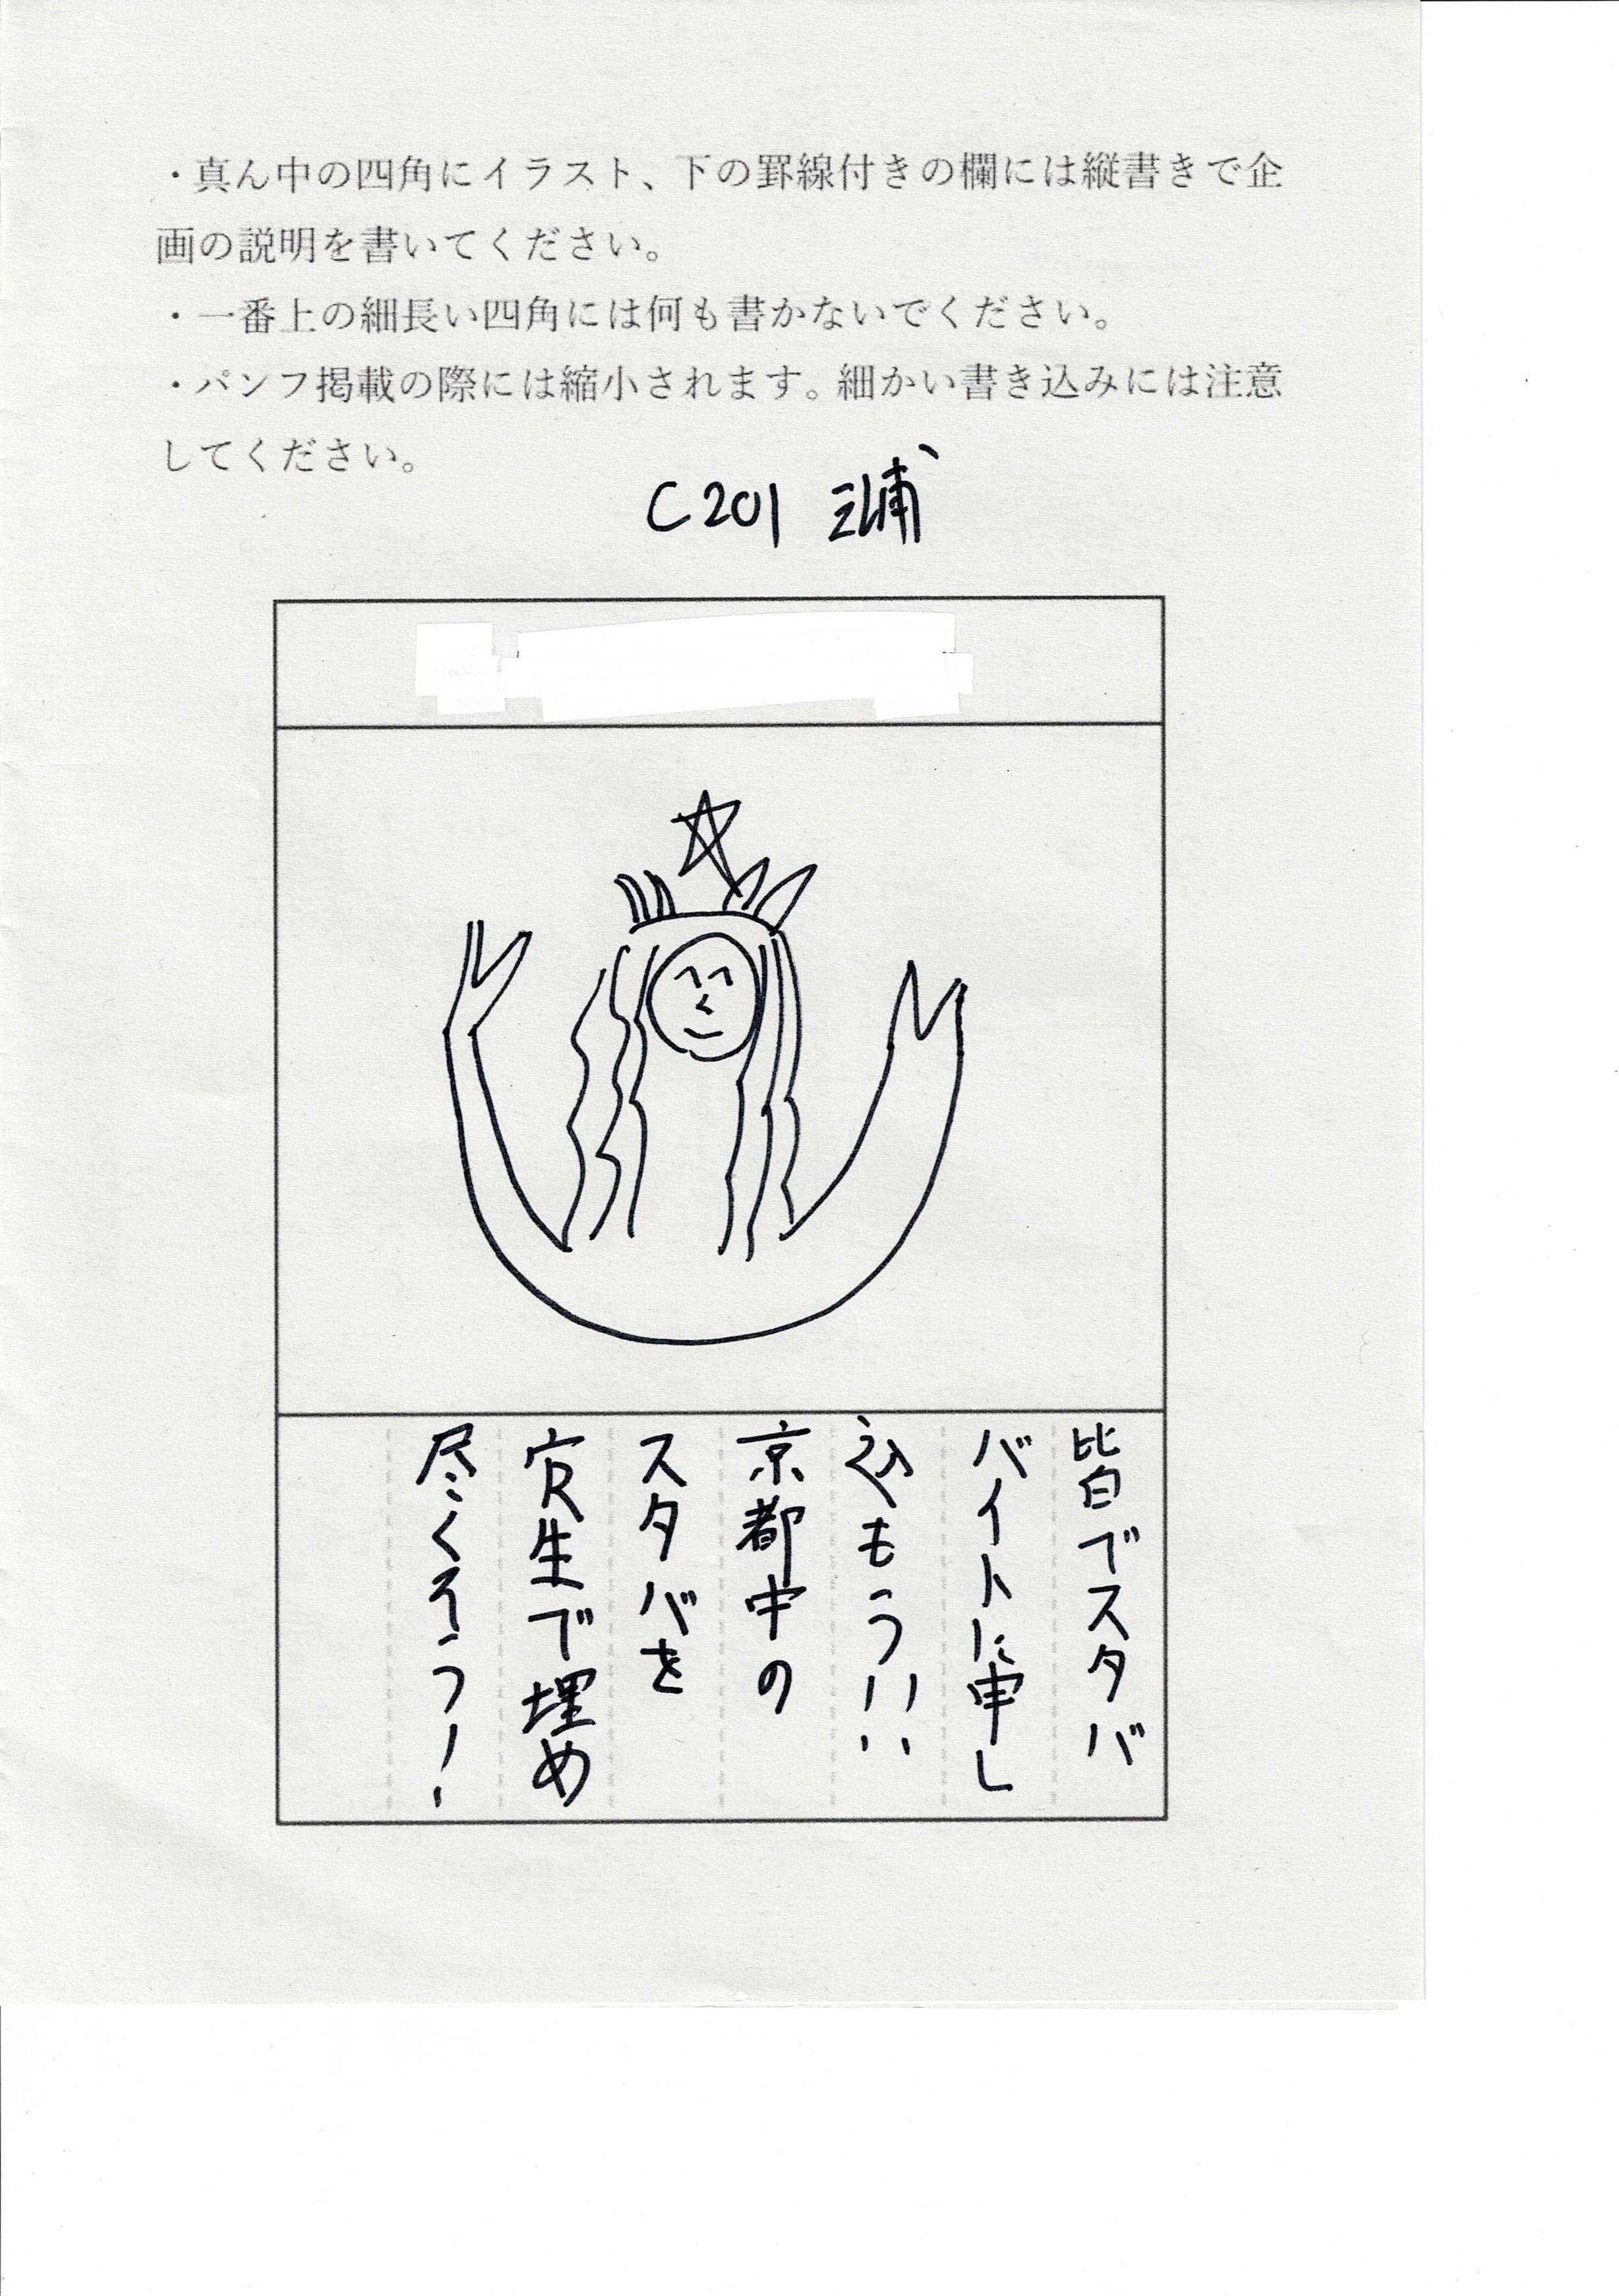 ・真ん中の四角にイラスト、下の罫線付きの欄には縦書きで企
画の説明を書いてください。
・一番上の細長い四角には何も書かないでください。
・パンフ掲載の際には縮小されます。細かい書き込みには注意
してください。
C201
皆でスタバ
バイトに申し
込もう!!
京都中の
スタバを
生で埋め
尽くそう!